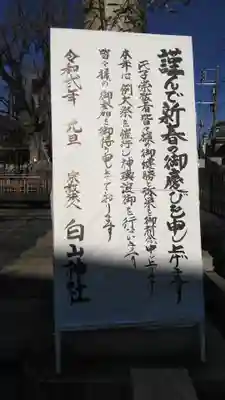 謹んで新春の御慶びを申し上げます
氏子崇敬者皆々様の御健勝と弥栄を御祈念申し上げます
本年は例大祭を催行し神璽渡御を行います
皆々様の御参加を御待ち申し上げております
令和弐年 元旦 宗教法人 白山神社